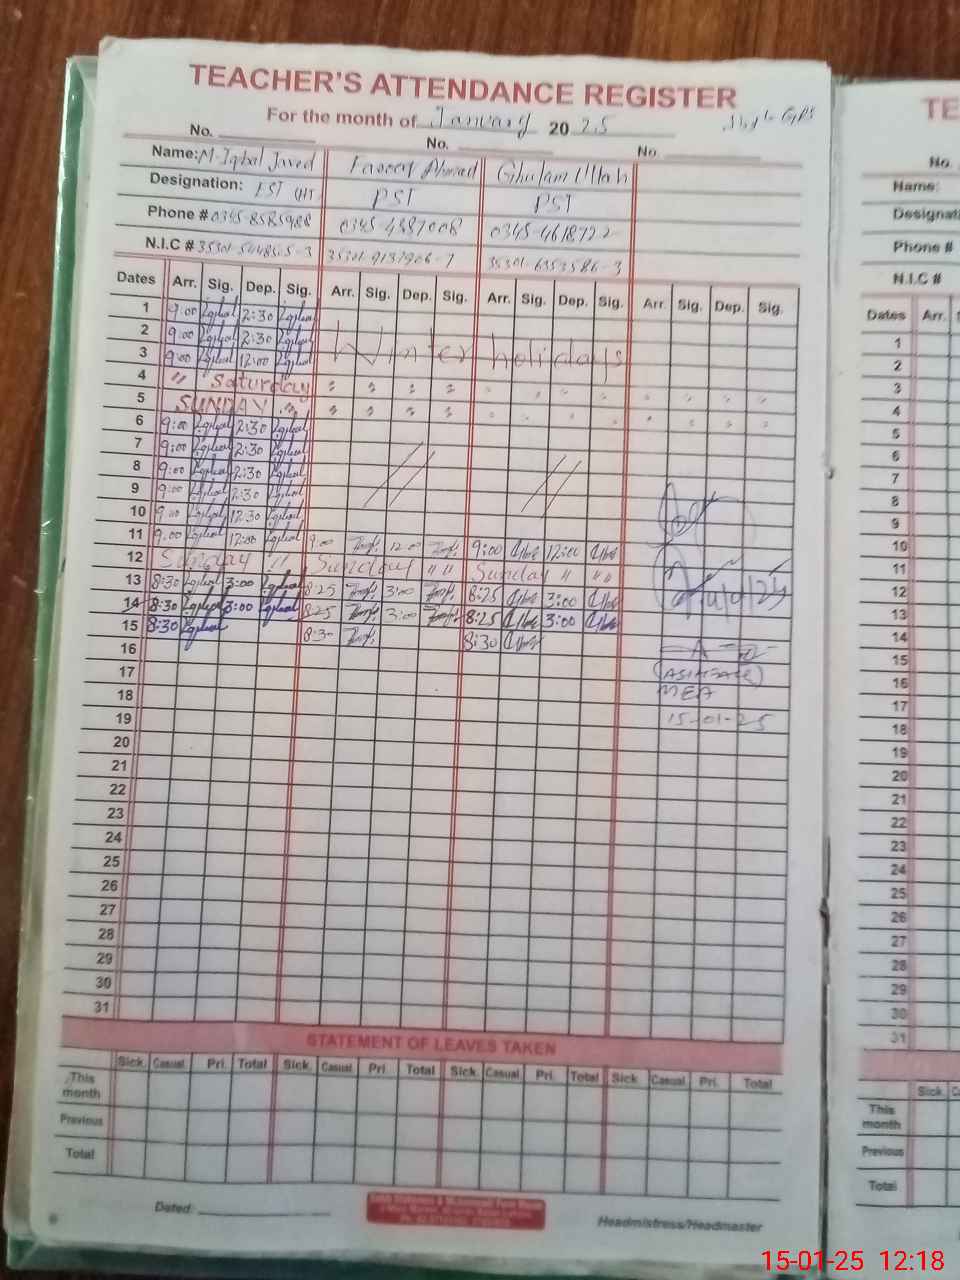 TEACHER'S ATTENDANCE REGISTER
For the month of January 20 25
No. No. No.
Name: M. Iqbal Javed Ahmad Ghulam Ullah
Designation: EST (HT) PST PST
Phone # 0345-8585988 0345-4587008 0345-4618722
N.I.C # 35301- -3 35301-9137906-7 35301-6353586-3
Dates Arr. Sig. Dep. Sig. Arr. Sig. Dep. Sig. Arr. Sig. Dep. Sig. Arr. Sig. Dep. Sig.
1 9:00 Iqbal 2:30 Iqbal
2 9:00 Iqbal 2:30 Iqbal Winter holidays
3 9:00 Iqbal 12:00 Iqbal
4 " Saturday
5 SUNDAY "
6 9:00 Iqbal 2:30 Iqbal
7 9:00 Iqbal 2:30 Iqbal
8 9:00 Iqbal 2:30 Iqbal
9 9:00 Iqbal 2:30 Iqbal
10 9:00 Iqbal 12:30 Iqbal
11 9:00 Iqbal 12:00 Iqbal 9:00 12:00 9:00 12:00
12 Sunday " Sunday " " Sunday " " "
13 8:30 Iqbal 3:00 Iqbal 8:25 3:00 8:25 3:00
14 8:30 Iqbal 3:00 Iqbal 8:25 3:00 8:25 3:00
15 8:30 Iqbal 8:30 8:30
16
17
18
19
20
21
22
23
24
25
26
27
28
29
30
31
MEA
15-01-25
STATEMENT OF LEAVES TAKEN
Sick. Casual. Pri. Total Sick. Casual. Pri. Total Sick. Casual. Pri. Total Sick. Casual. Pri. Total
This month
Previous
Total
Dated:
Headmistress/Headmaster
TE
No.
Name:
Designati
Phone #
N.I.C #
Dates Arr.
1
2
3
4
5
6
7
8
9
10
11
12
13
14
15
16
17
18
19
20
21
22
23
24
25
26
27
28
29
30
31
Sick. C
This month
Previous
Total
15-01-25 12:18